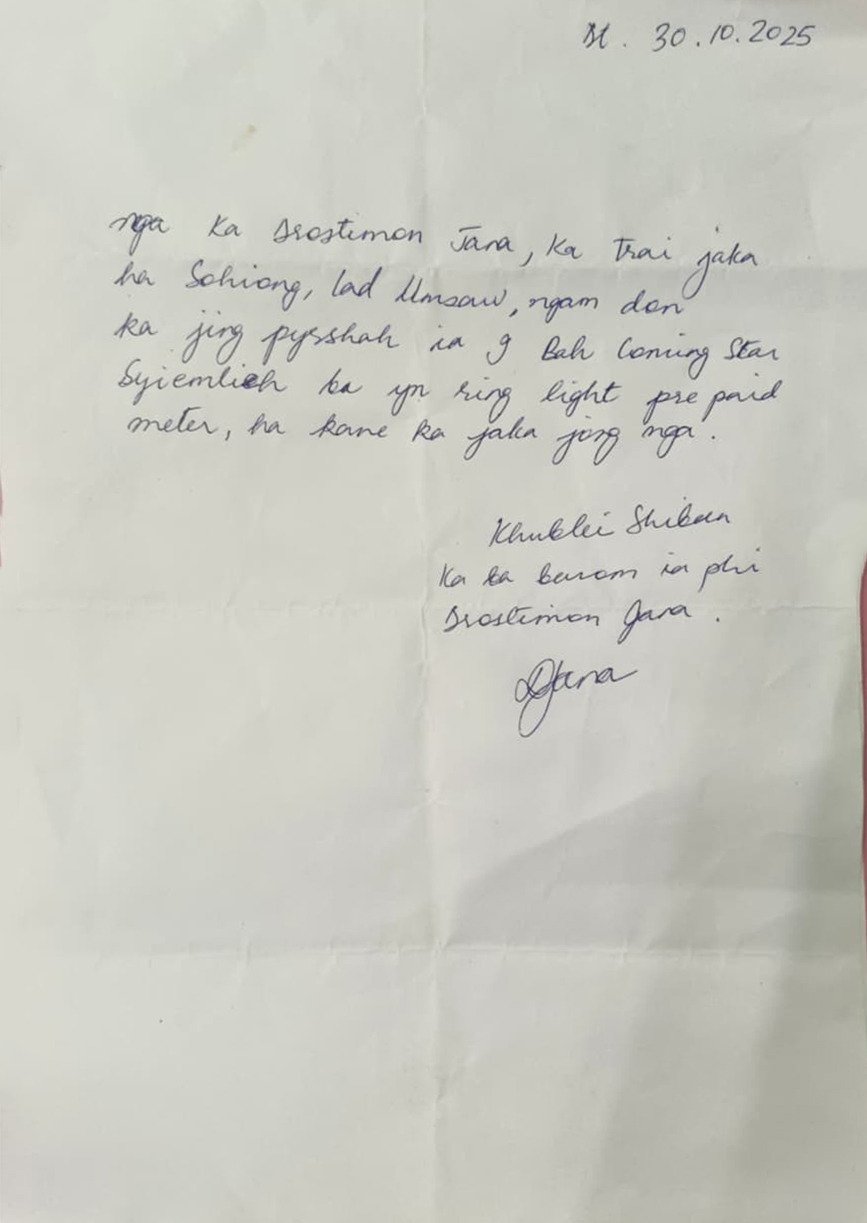 Dt. 30.10.2025
nga Ka Drostimon Jana, Ka Trai jaka
ha Sohiong, lad Umsaw, ngam don
ka jing pyrshah ia I Bah Coming Star
Syiemlieh ba yn ring light pre paid
meter, ha kane ka jaka jong nga.
Khublei Shibun
Ka ba burom ia phi
Drostimon Jana.
DJana